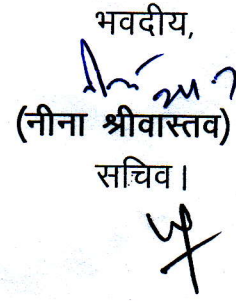 भवदीय,
(नीना श्रीवास्तव)
सचिव।